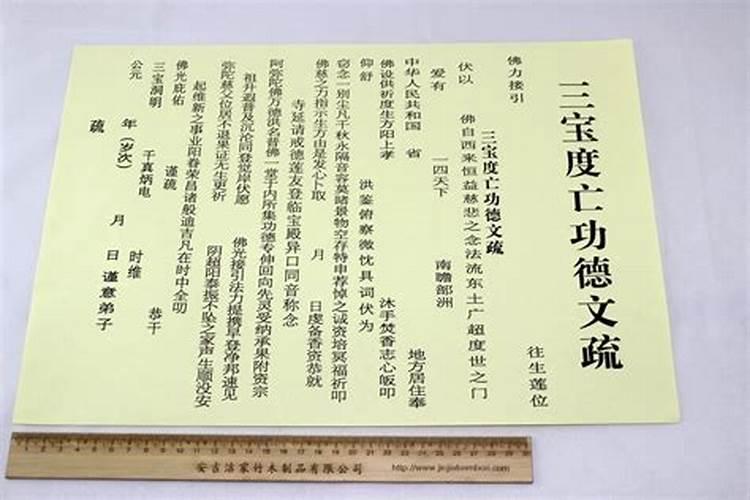 三宝度亡功德文疏
佛力接引 往生莲位
三宝度亡功德文疏
伏以 佛自西来恒益慈悲之念法流东土广超度世之门
爰有 一四天下 南瞻部洲
中华人民共和国 省 地方居住奉
佛设供祈度生方阳上孝 沐手焚香志心皈叩
仰舒 洪鉴俯察微忱具词伏为
窃念一别尘凡千秋永隔音容莫睹景物空存特申荐悼之诚资培冥福祈叩
佛慈之力指示生方由是发心卜取 月 日虔备香资恭就
寺延请戒德莲友登临宝殿异口同音称念
阿弥陀佛万德洪名普佛一堂于内所集功德专伸回向先灵受纳承果附资宗
祖升遐普及沉沦同登觉岸伏愿 佛光接引法力提携早登净邦速见
弥陀慈父位居不退果证无生更祈 阴超阳泰振不坠之家声生顺没安
起维新之事业阳眷荣昌诸般迪吉凡在时中全叨
佛光庇佑 谨疏
三宝洞明 千真炳电 恭干
公元 年（岁次） 月 日 时维 谨意弟子
疏
安吉洁家竹木制品有限公司